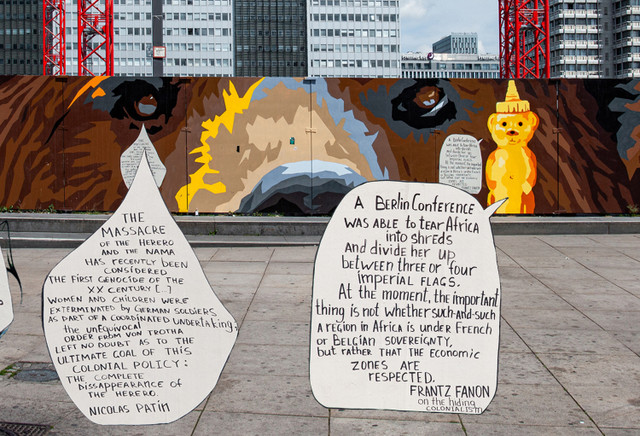 THE
MASSACRE
OF THE HERERO
AND THE NAMA
HAS RECENTLY BEEN
CONSIDERED
THE FIRST GENOCIDE OF THE
XX CENTURY [...]
WOMEN AND CHILDREN WERE
EXTERMINATED BY GERMAN SOLDIERS
AS PART OF A COORDINATED UNDERTAKING,
the unEquivocal
ORDER FROM VON TROTHA
LEFT NO DOUBT AS TO THE
ULTIMATE GOAL OF THIS
COLONIAL POLICY:
THE COMPLETE
DISSAPPEARANCE OF
THE HERERO.
NICOLAS PATIN
A Berlin Conference
WAS ABLE to TEAR Africa
into shreds
and divide her up
between three or four
imperial flags.
At the moment, the important
thing is not whether such-and-such
A region in Africa is under French
or Belgian sovereignty,
but rather THAT THE ECONOMIC
ZONES ARE
RESPECTED.
FRANTZ FANON
on the hiding
COLONIALISM